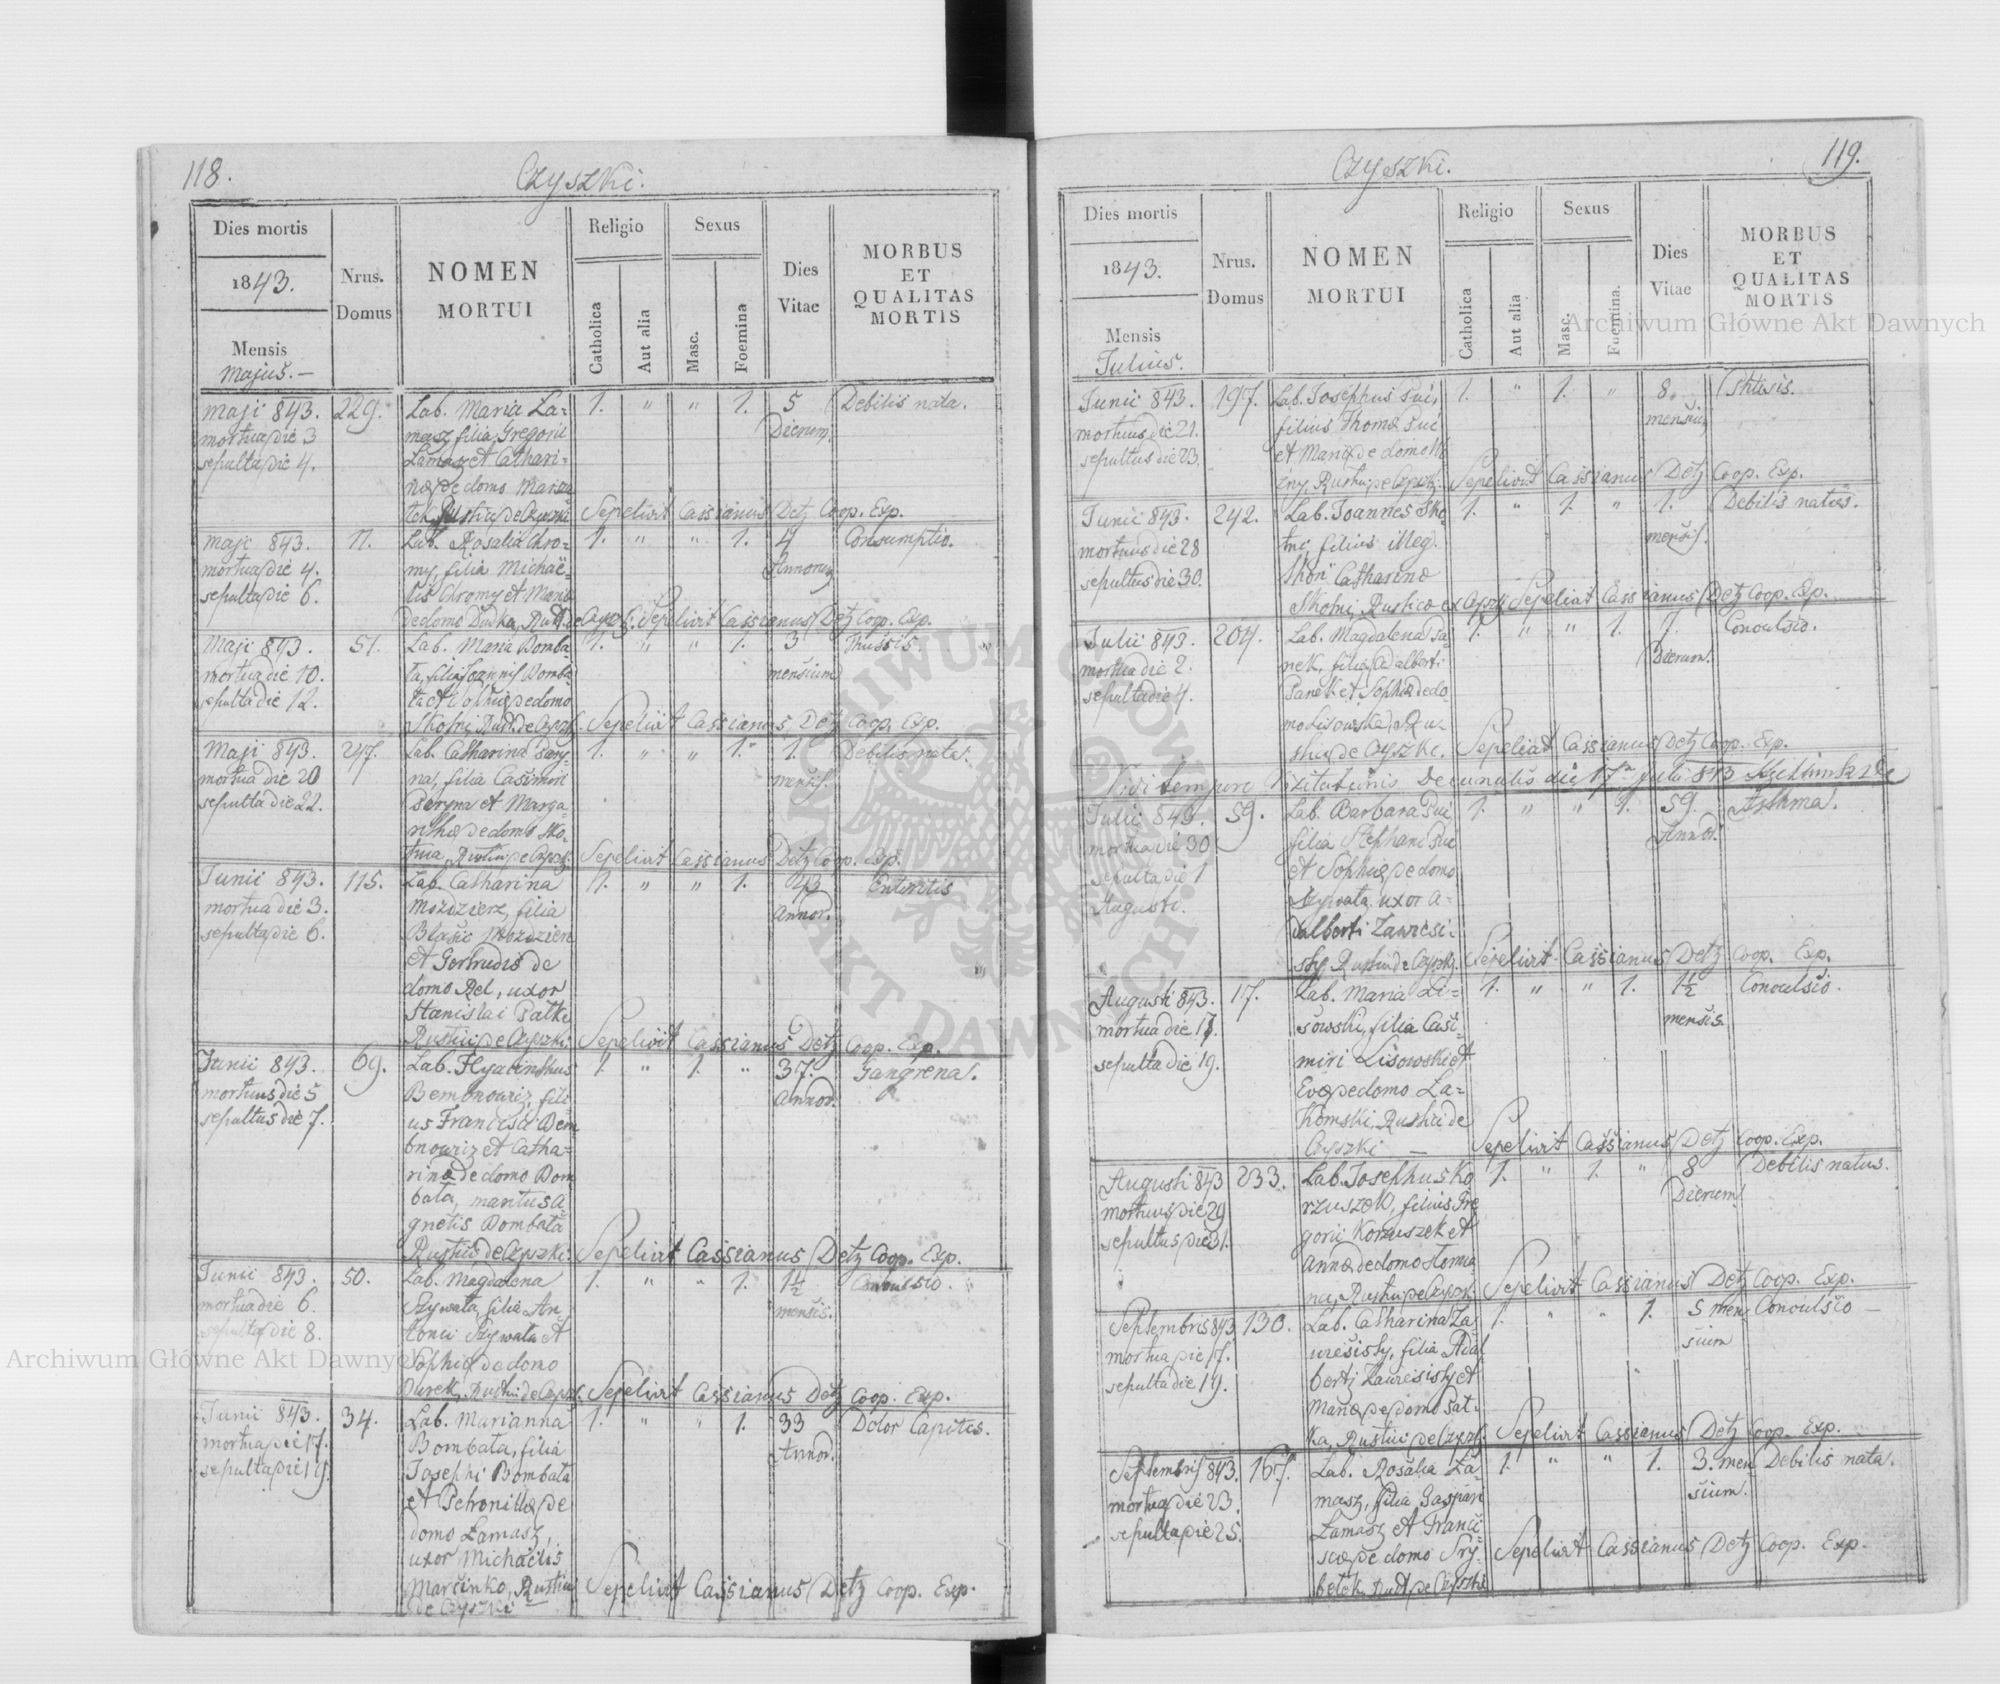 118.
Czyszki.
Dies mortis
1843.
Mensis
Majus. —
Nrus.
Domus
NOMEN
MORTUI
Religio
Catholica
Aut alia
Sexus
Masc.
Foemina
Dies
Vitae
MORBUS
ET
QUALITAS
MORTIS
Maji 843. 229. Lab. Maria La= 1. " " 1. 5 Debilis nata.
mortua die 3 masz filia Gregorii Dierum.
sepulta die 4. Lamasz et Cathari=
næ de domo
Sepelivit Cassianus Detz Coop. Exp.
Maji 843. 11. Lab. Rosalia Chro= 1. " " 1. 4 Consumptio.
mortua die 4. my, filia Michaë= Annorum
sepulta die 6. lis Chromy et Maria
de domo Dudka, Sepelivit Cassianus Detz Coop. Exp.
Maji 843. 51. Lab. Maria Bomba= 1. " " 1. 3 Thussis.
mortua die 10. ta, filia Joannis Bomba= mensium
sepulta die 12. ta et Sophiæ de domo
Skotnj Rust. de Czyszk. Sepelivit Cassianus Detz Coop. Exp.
Maji 843. 247. Lab. Catharina 1. " " 1. 1. Debilis nata.
mortua die 20 filia Casimiri mensis.
sepulta die 22. et Marga=
rithæ de domo Sko=
Sepelivit Cassianus Detz Coop. Exp.
Junii 843. 115. Lab. Catharina 1. " " 1. 43 Enteritis
mortua die 3. Mozdzierz, filia Annor.
sepulta die 6. Blasii Mozdzierz
et Gertrudis de
domo Rel, uxor
Stanislai Patki
Rustici de Czyszki. Sepelivit Cassianus Detz Coop. Exp.
Junii 843. 69. Lab. Hyacinthus 1. " 1. " 37. Gangrena.
mortuus die 5 Bembnowicz, fili= Annor.
sepultus die 7. us Francisci Bem=
bnowicz et Catha=
rinæ de domo Bom
bata, maritus A=
gnetis Bombata
Rustici de Czyszki. Sepelivit Cassianus Detz Coop. Exp.
Junii 843. 50. Lab. Magdalena 1. " " 1. 1½ Convulsio.
mortua die 6. Szywata, filia An= mensis.
sepulta die 8. tonii Szywata et
Sophiæ de domo
Durek, Rustici de Czyszk. Sepelivit Cassianus Detz Coop. Exp.
Junii 843. 34. Lab. Marianna 1. " " 1. 33 Dolor Capitis.
mortua die 17. Bombata, filia Annor.
sepulta die 19. Josephi Bombata
et Petronillæ de
domo Lamasz,
uxor Michaëlis
Marcinko, Rustici Sepelivit Cassianus Detz Coop. Exp.
de Czyszki
119.
Czyszki.
Dies mortis
1843.
Mensis
Julius.
Nrus.
Domus
NOMEN
MORTUI
Religio
Catholica
Aut alia
Sexus
Masc.
Foemina.
Dies
Vitae
MORBUS
ET
QUALITAS
MORTIS
Junii 843. 197. Lab. Josephus Puć, 1. " 1. " 8. Phtisis.
mortuus die 21. filius Thomæ Puć mensium
sepultus die 23. et Mariæ de domo
Rustici de Czyszki. Sepelivit Cassianus Detz Coop. Exp.
Junii 843. 242. Lab. Joannes Sko= 1. " 1. " 1. Debilis natus.
mortuus die 28 tnj, filius illeg. mensis.
sepultus die 30. thori Catharinæ
Skotnj, Rustica ex Czyszki Sepelivit Cassianus Detz Coop. Exp.
Julii 843. 204. Lab. Magdalena Pa= 1. " " 1. 7. Convulsio.
mortua die 2. nek, filia Adalberti Dierum.
sepulta die 4. Panek et Sophiæ de do=
mo Lisowska, Ru=
stici de Czyszki. Sepelivit Cassianus Detz Coop. Exp.
Vidi tempore Visitationis Decanalis die 17ª Julii 843
Julii 843. 59. Lab. Barbara Puć 1. " " 1. 59. Asthma.
mortua die 30 filia Stephani Puć Annor.
sepulta die 1 et Sophiæ de domo
Augusti. Szywata, uxor A=
dalberti Zawisi=
sty Rustici de Czyszki. Sepelivit Cassianus Detz Coop. Exp.
Augusti 843. 17. Lab. Maria Li= 1. " " 1. 1½ Convulsio.
mortua die 17. sowski, filia Casi= mensis.
sepulta die 19. miri Lisowski et
Evæ de domo La=
komski, Rustici de
Czyszki — Sepelivit Cassianus Detz Coop. Exp.
Augusti 843 233. Lab. Josephus Ko= 1. " 1. " 8 Debilis natus.
mortuus die 29 rzuszek, filius Gre= Dierum.
sepultus die 31. gorii Korzuszek et
Annæ de domo
Rustici de Czyszk. Sepelivit Cassianus Detz Coop. Exp.
Septembris 843. 130. Lab. Catharina Za= 1. " " 1. 5 men= Convulsio —
mortua die 17. filia Adal= sium
sepulta die 19. berti et
Mariæ de domo Pat=
ka, Rustici de Czyszk. Sepelivit Cassianus Detz Coop. Exp.
Septembris 843. 167. Lab. Rosalia La= 1. " " 1. 3. men= Debilis nata.
mortua die 23. masz, filia Gaspari sium.
sepulta die 25. Lamasz et Franci=
scæ de domo Gry= Sepelivit Cassianus Detz Coop. Exp.
Rust. de Czyszki
Archiwum Główne Akt Dawnych
Archiwum Główne Akt Dawnych
ARCHIWUM GŁÓWNE AKT DAWNYCH